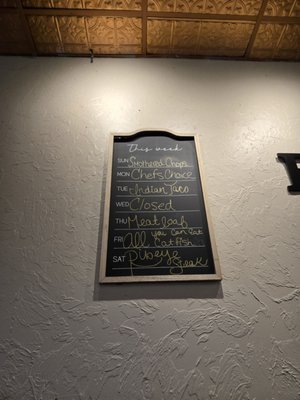 This week
SUN Smothered Chops
MON Chefs Choice
TUE Indian Taco
WED Closed
THU Meatloaf
FRI All you can eat
Catfish
SAT Ribeye
Steak